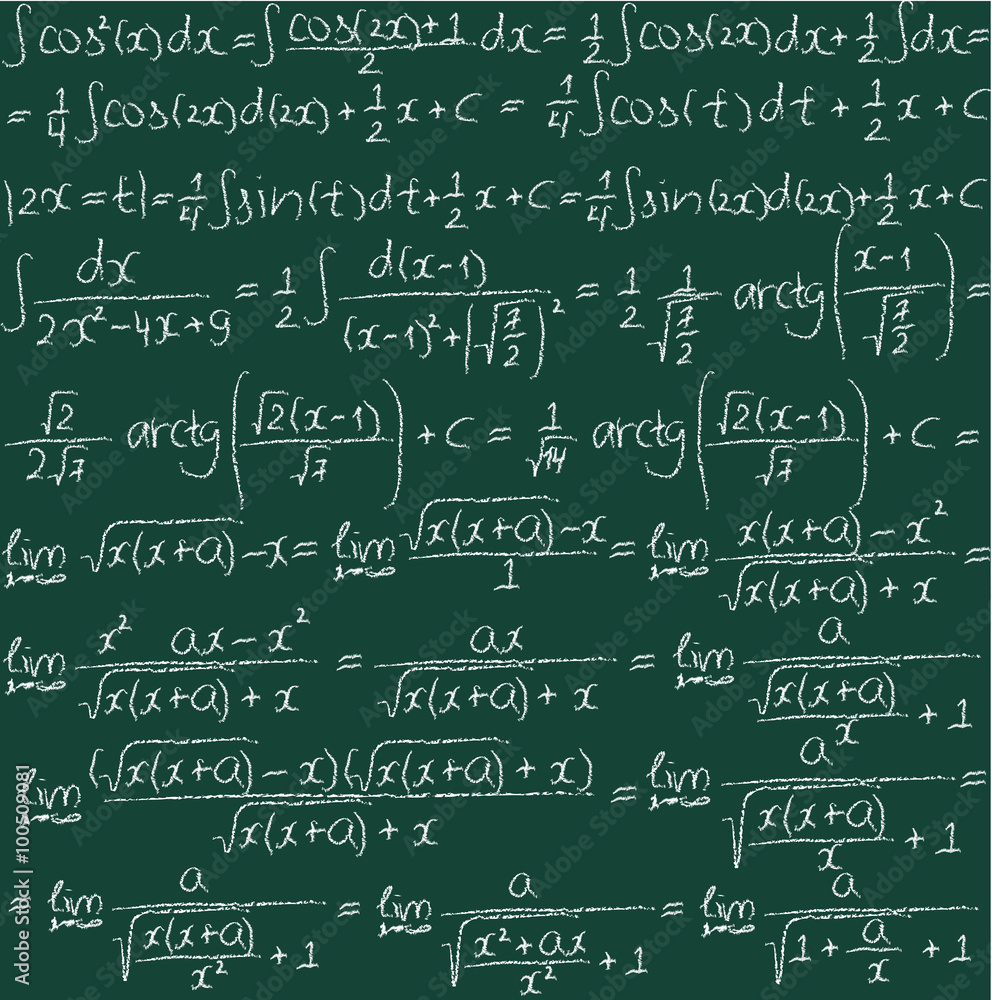 ∫cos²(x)dx=∫(cos(2x)+1)/2 dx= 1/2 ∫cos(2x)dx+ 1/2 ∫dx=
= 1/4 ∫cos(2x)d(2x)+ 1/2 x+C = 1/4 ∫cos(t)dt + 1/2 x+C
|2x=t|= 1/4 ∫sin(t)dt+ 1/2 x+C= 1/4 ∫sin(2x)d(2x)+ 1/2 x+C
∫ dx/(2x²-4x+9) = 1/2 ∫ d(x-1)/((x-1)²+(√(7/2))²) = 1/2 1/√(7/2) arctg((x-1)/√(7/2)) =
√2/(2√7) arctg(√2(x-1)/√7) +C = 1/√14 arctg(√2(x-1)/√7) +C =
lim x→∞ √(x(x+a)) -x= lim x→∞ (√(x(x+a)) -x)/1 = lim x→∞ (x(x+a)-x²)/(√(x(x+a)) + x) =
lim x→∞ (x² ax-x²)/(√(x(x+a)) + x) = ax/(√(x(x+a)) + x) = lim x→∞ a/(√(x(x+a))/x + 1)
lim (√(x(x+a)) - x)(√(x(x+a)) + x)/(√(x(x+a)) + x) = lim x→∞ a/(√(x(x+a)/x) + 1) =
lim x→∞ a/(√(x(x+a)/x²) + 1) = lim x→∞ a/(√((x²+ax)/x²) + 1) = lim x→∞ a/(√(1+a/x) + 1)
Adobe Stock | #100509081